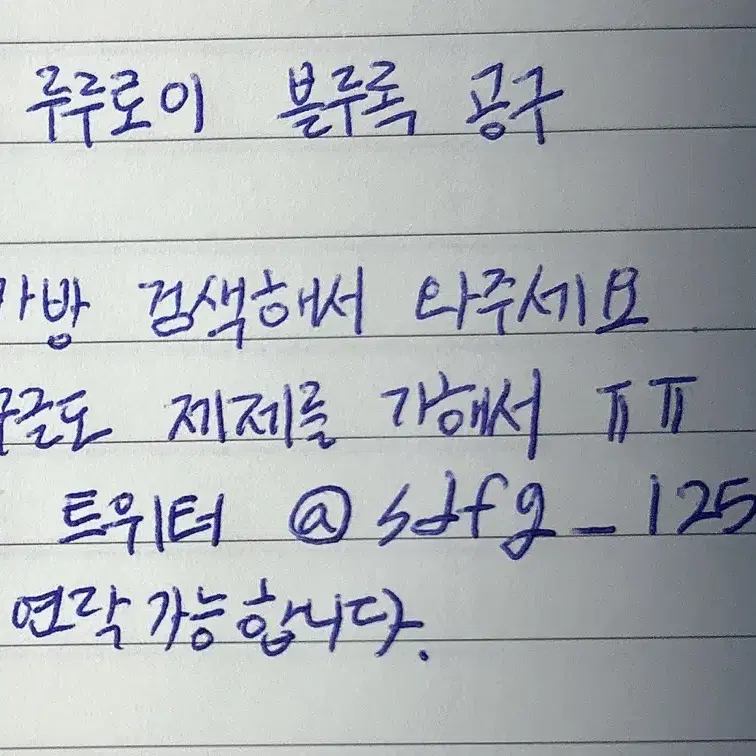 루루로이 블루록 공구
가방 검색해서 와주세요
구글도 제제를 가해서 ㅠㅠ
트위터 @sdfg_125
연락가능합니다.